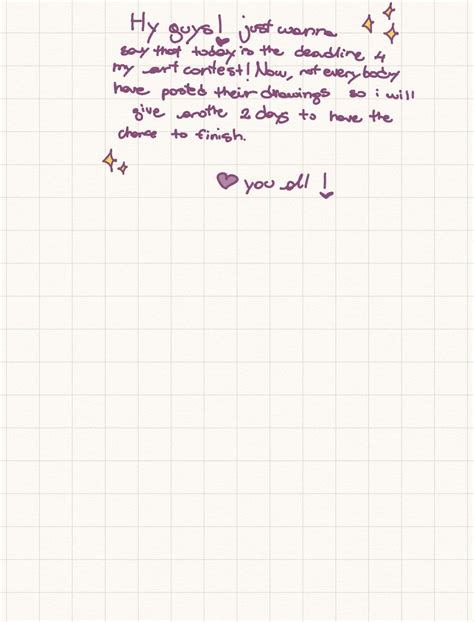 Hy guys! just wanna
say that today is the deadline 4
my art contest! Now, not every body
have posted their drawings so i will
give anothe 2 days to have the
chance to finish.
♥ you all !